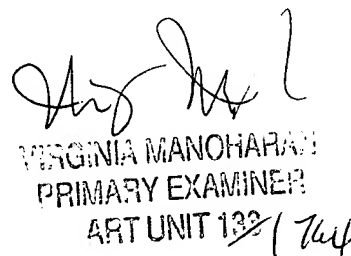 VIRGINIA MANOHARAN
PRIMARY EXAMINER
ART UNIT 133/1764